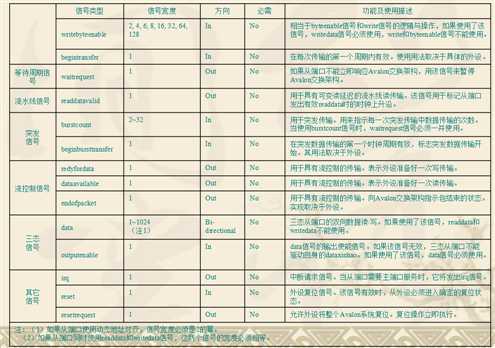 信号类型 信号宽度 方向 必需 功能及使用描述
writebyteenable 2, 4, 6, 8, 16, 32, 64, 128 In No 相当于byteenable信号和write信号的逻辑与操作，如果使用了该信号，writedata信号必须使用，write和byteenable信号不能使用。
begintransfer 1 In No 在每次传输的第一个周期内有效，使用用法取决于具体的外设。
等待周期信号 waitrequest 1 Out No 如果从端口不能立即响应Avalon交换架构，用该信号来暂停Avalon交换架构。
流水线信号 readdatavalid 1 Out No 用于具有可变读延迟的流水线读传输。该信号用于标记从端口发出有效readdata时的时钟上升沿。
突发信号 burstcount 2~32 In No 用于突发传输。用来指示每一次突发传输中数据传输的次数。当使用burstcount信号时，waitrequest信号必须一并使用。
beginbursttransfer 1 In No 在突发数据传输的第一个时钟周期有效，标志突发数据传输开始，其用法取决于外设。
流控制信号 redyfordata 1 Out No 用于具有流控制的传输。表示外设准备好一次写传输。
dataavailable 1 Out No 用于具有流控制的传输。表示外设准备好一次读传输。
endofpacket 1 Out No 用于具有流控制的传输。向Avalon交换架构指示包结束的状态。实现取决于外设。
三态信号 data 1~1024（注1） Bi-directional No 三态从端口的双向数据读/写。如果使用了该信号，readdata和writedata不能使用。
outputenable 1 In No data信号的输出使能信号。如果该信号无效，三态从端口不能驱动自身的dataxinhao。如果使用了该信号，data信号必须使用。
其它信号 irq 1 Out No 中断请求信号。当从端口需要主端口服务时，它将发出irq信号。
reset 1 In No 外设复位信号。该信号有效时，从外设必须进入确定的复位状态。
resetrequest 1 Out No 允许外设将整个Avalon系统复位。复位操作立即执行。
注：（1）如果从端口使用动态地址对齐，信号宽度必须是2的幂。
（2）如果从端口同时使用readdata和writedata信号，这两个信号的宽度必须相等。